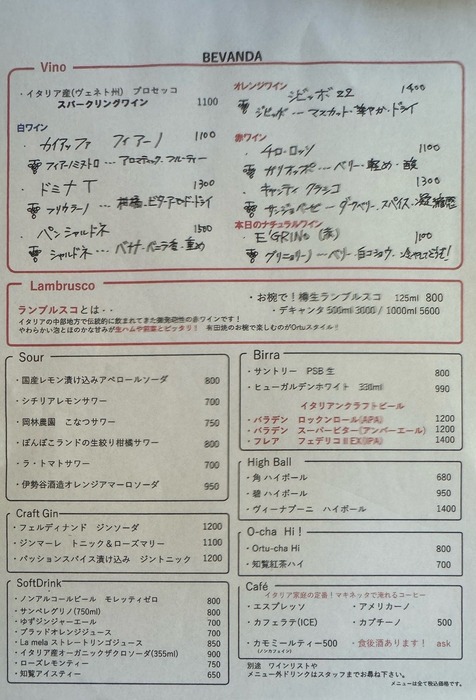 BEVANDA
Vino
・イタリア産(ヴェネト州) プロセッコ
スパークリングワイン 1100
白ワイン
・カイアッファ フィアーノ 1100
フィアーノミネストロ… アロマティック、フルーティー
・ドミナ T 1300
フリウラーノ … 柑橘・ビターアーモンド・ドライ
・パン シャルドネ 1500
シャルドネ… バナナ・バニラ香・重め
オレンジワイン
ジビッボ 22 1400
ジビッボ … マスカット・華やか・ドライ
赤ワイン
・チロ・ロッソ 1100
ガリオッポ… ベリー・軽め・酸
・キャンティ クラシコ 1300
サンジョベーゼ… ダークベリー、スパイス
本日のナチュラルワイン
・E'GRINO (赤) 1100
グリニョリーノ… ベリー・白コショウ・冷やしてどうぞ!
Lambrusco
ランブルスコとは・・
イタリアの中部地方で伝統的に飲まれてきた微発泡性の赤ワインです！
やわらかい泡とほのかな甘みが生ハムや前菜とピッタリ！ 有田焼のお碗で楽しむのがOrtuスタイル‼
・お碗で！樽生ランブルスコ 125ml 800
・デキャンタ 500ml 3000 / 1000ml 5600
Sour
・国産レモン漬け込みアペロールソーダ 800
・シチリアレモンサワー 700
・岡林農園 こなつサワー 750
・ぽんぽこランドの生絞り柑橘サワー 800
・ラ・トマトサワー 700
・伊勢谷酒造オレンジアマーロソーダ 950
Craft Gin
・フェルディナンド ジンソーダ 1200
・ジンマーレ トニック＆ローズマリー 1100
・パッションスパイス漬け込み ジントニック 1200
SoftDrink
・ノンアルコールビール モレッティゼロ 800
・サンペレグリノ(750ml) 800
・ゆずジンジャーエール 700
・ブラッドオレンジジュース 700
・La mela ストレートリンゴジュース 850
・イタリア産オーガニックザクロソーダ(355ml) 900
・ローズレモンティー 750
・知覧アイスティー 650
Birra
・サントリー PSB 生 800
・ヒューガルデンホワイト 330ml 990
イタリアンクラフトビール
・バラデン ロックンロール(APA) 1200
・バラデン スーパービター(アンバーエール) 1200
・フレア フェデリコⅡEX(IPA) 1400
High Ball
・角 ハイボール 680
・碧 ハイボール 950
・ヴィーナプーニ ハイボール 1400
O-cha Hi！
・Ortu-cha Hi 800
・知覧紅茶ハイ 700
Café
イタリア家庭の定番！マキネッタで淹れるコーヒー
・エスプレッソ ・アメリカーノ
・カフェラテ(ICE) ・カプチーノ 500
・カモミールティー500 ・食後酒あります！ ask
(ノンカフェイン)
別途 ワインリストや
メニュー外ドリンクはスタッフまでお尋ね下さい。
メニューは全て税込価格です。